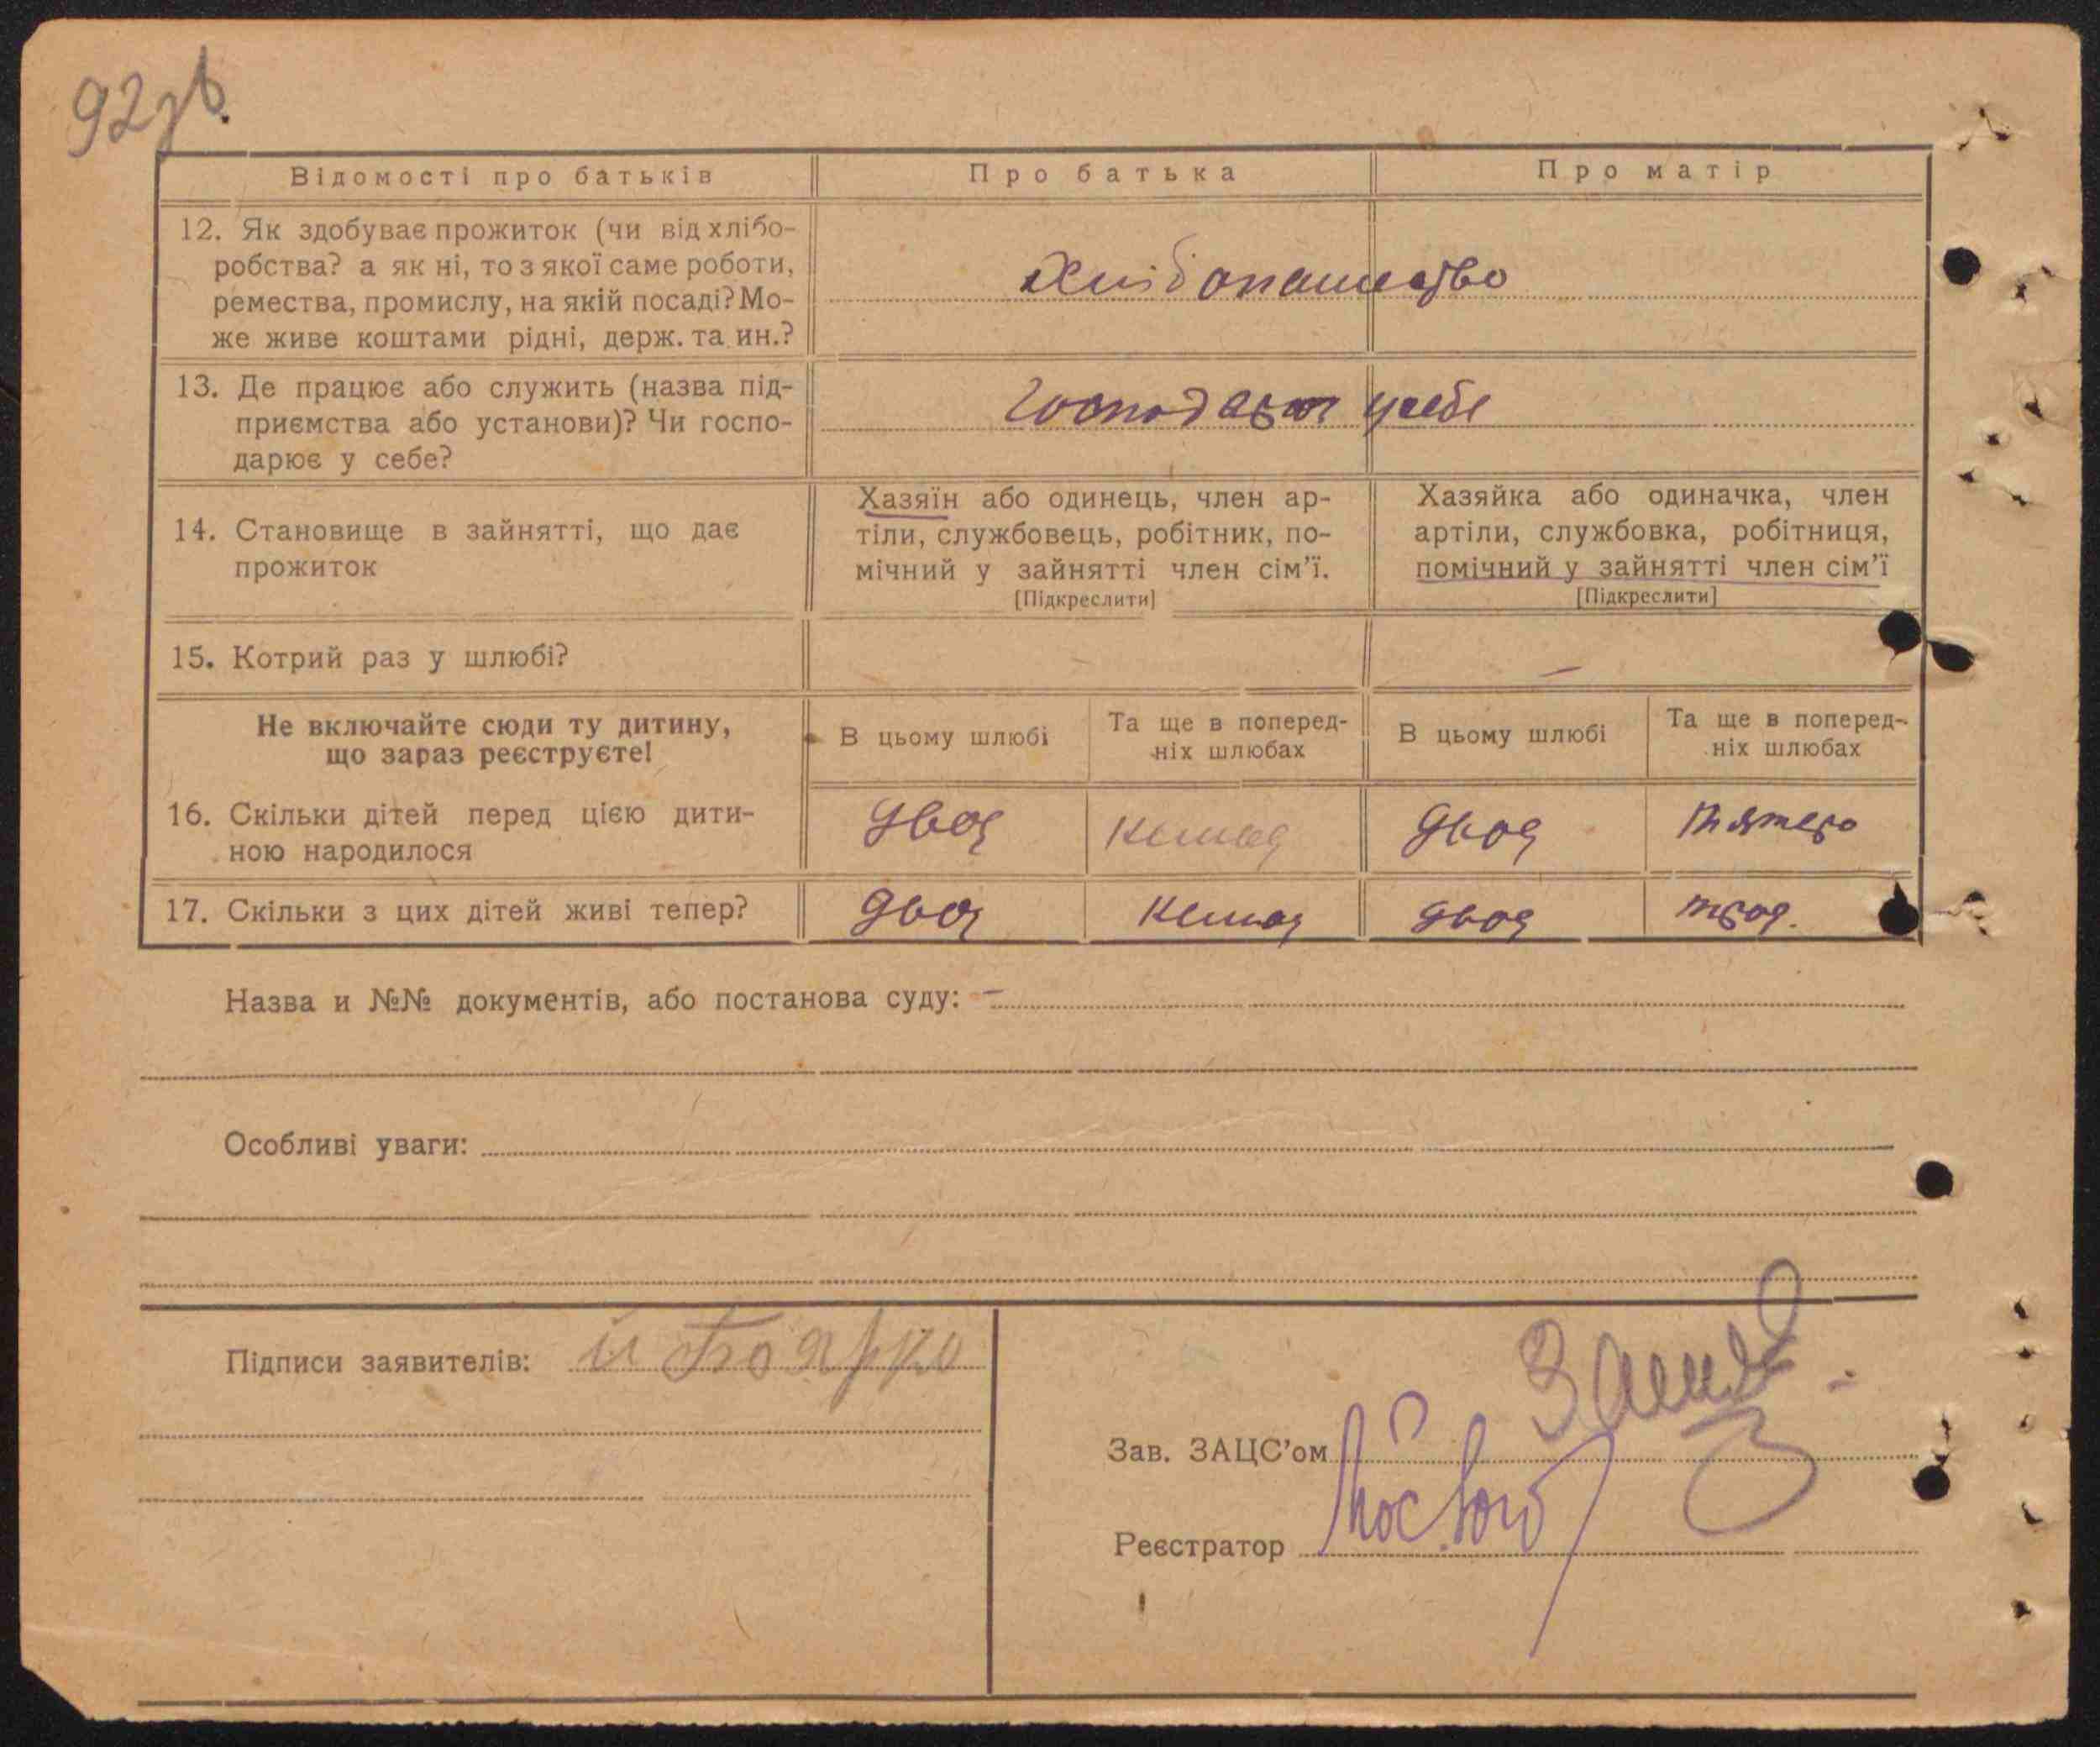 92 зв.
Відомості про батьків
Про батька
Про матір
12. Як здобуває прожиток (чи від хлібо-
робства? а як ні, то з якої саме роботи,
ремества, промислу, на якій посаді? Мо-
же живе коштами рідні, держ. та ин.?
Хлібопашество
13. Де працює або служить (назва під-
приємства або установи)? Чи госпо-
дарює у себе?
у себе
14. Становище в зайнятті, що дає
прожиток
Хазяїн або одинець, член ар-
тіли, службовець, робітник, по-
мічний у зайнятті член сім'ї.
[Підкреслити]
Хазяйка або одиначка, член
артіли, службовка, робітниця,
помічний у зайнятті член сім'ї
[Підкреслити]
15. Котрий раз у шлюбі?
–
Не включайте сюди ту дитину,
що зараз реєструєте!
В цьому шлюбі
Та ще в поперед-
ніх шлюбах
В цьому шлюбі
Та ще в поперед-
ніх шлюбах
16. Скільки дітей перед цією дити-
ною народилося
двоя
немая
двоя
пятеро
17. Скільки з цих дітей живі тепер?
двоя
немая
двоя
троя.
Назва и №№ документів, або постанова суду: –
Особливі уваги:
Підписи заявителів:
Зав. ЗАЦС'ом
Реєстратор